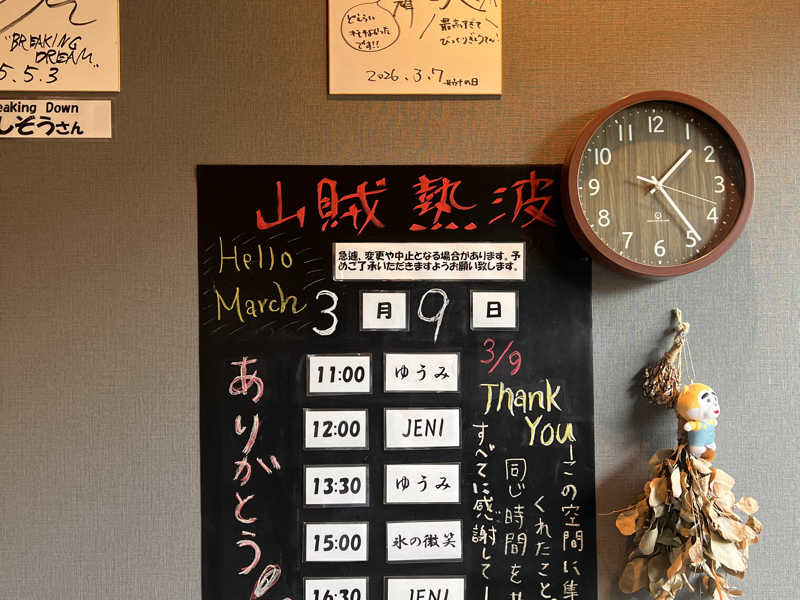 "BREAKING
DREAM"
5.5.3
eaking Down
しぞうさん
どえらい
です!!
最高すぎて
2026.3.7
山賊熱波
Hello
March
急遽、変更や中止となる場合があります。予
めご了承いただきますようお願い致します。
3月9日
ありがとう
11:00 ゆうみ
12:00 JENI
13:30 ゆうみ
15:00 氷の微笑
16:30 JENI
3/9
Thank
You
この空間に集
くれたこと
同じ時間をせ
すべてに感謝して
12
1
2
3
4
5
6
7
8
9
10
11